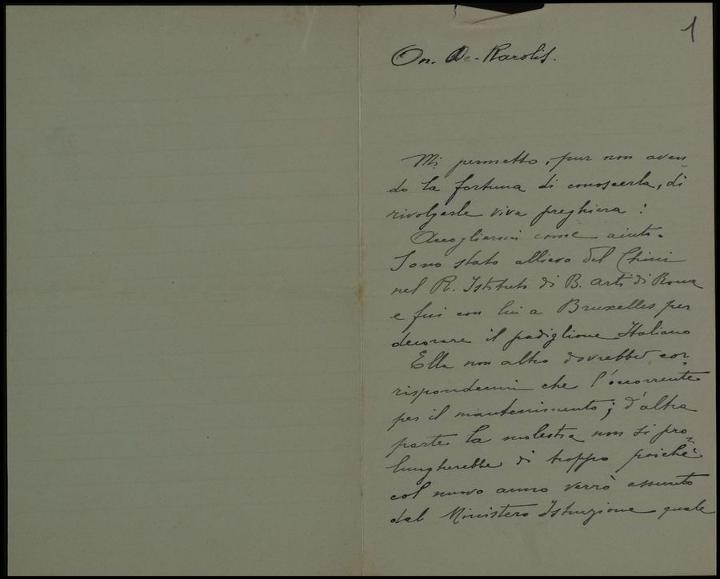 1
On. De-Karolis.
Mi permetto, pur non aven
do la fortuna di conoscerla, di
rivolgerle viva preghiera:
Accogliermi come aiuto.
Sono stato allievo del Chini
nel R. Istituto di B. arti di Roma
e fui con lui a Bruxelles per
decorare il padiglione Italiano
Ella non altro dovrebbe cor-
rispondermi che l'occorrente
per il mantenimento; d'altra
parte la molestia non si pro-
lungherebbe di troppo poichè
col nuovo anno verrò assunto
dal Ministero Istruzione quale